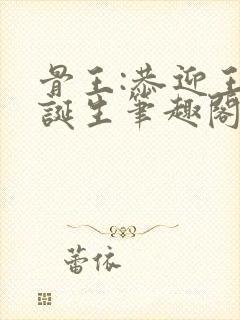 骨王:恭迎王
誕生筆趣閣
蕾依